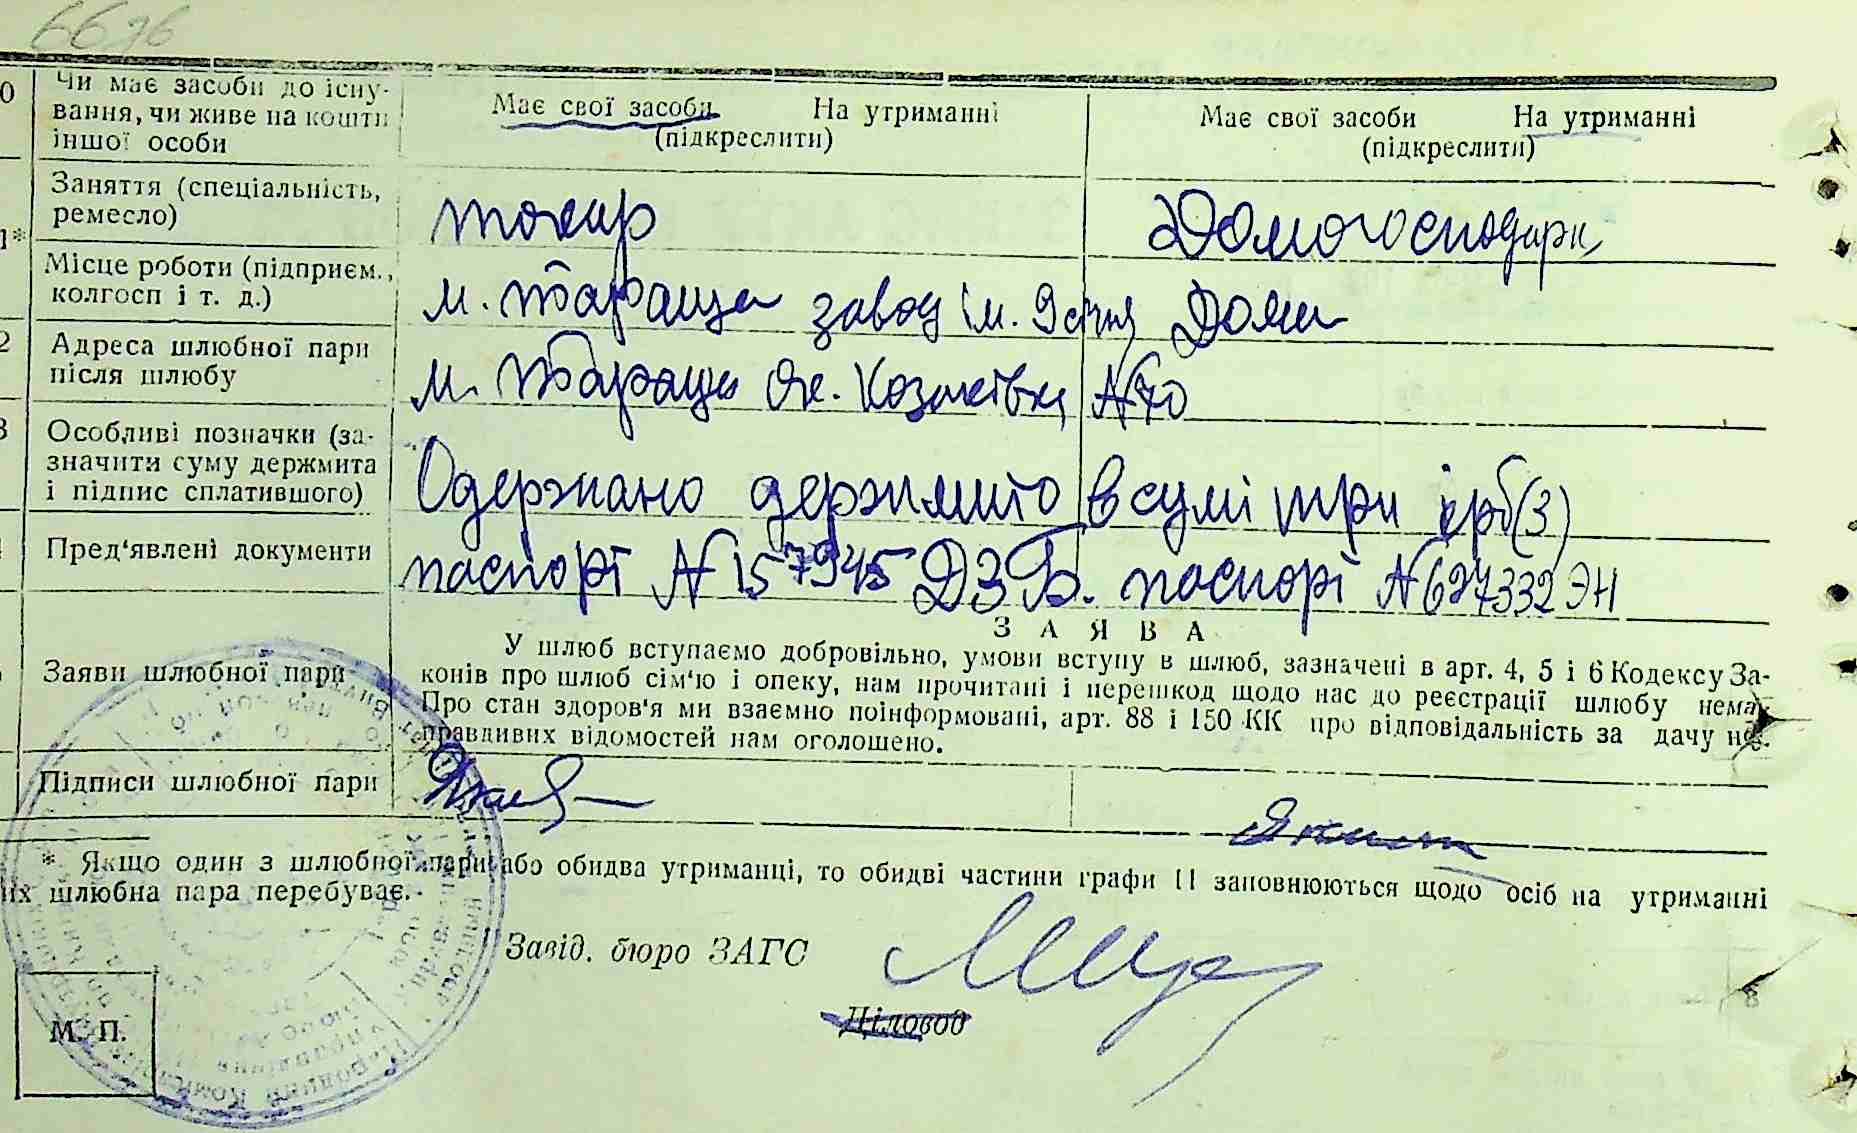 6676
0 Чи має засоби до існу-
вання, чи живе на кошти
іншої особи
Має свої засоби На утриманні
(підкреслити)
Має свої засоби На утриманні
(підкреслити)
1* Заняття (спеціальність,
ремесло)
токар
Домогосподарк
Місце роботи (підприєм.,
колгосп і т. д.)
м. Тараща завод ім. 9 січня Дома
2 Адреса шлюбної пари
після шлюбу
м. Тараща №70
3 Особливі позначки (за-
значити суму держмита
і підпис сплатившого)
Одержано держмито в сумі три крб (3)
Пред'явлені документи
паспорт N 157945 ДЗБ. паспорт N 627332 ЭН
Заяви шлюбної пари
ЗАЯВА
У шлюб вступаємо добровільно, умови вступу в шлюб, зазначені в арт. 4, 5 і 6 Кодексу За-
конів про шлюб сім'ю і опеку, нам прочитані і перешкод щодо нас до реєстрації шлюбу немає.
Про стан здоров'я ми взаємно поінформовані, арт. 88 і 150 КК про відповідальність за дачу не-
правдивих відомостей нам оголошено.
Підписи шлюбної пари
* Якщо один з шлюбної пари або обидва утриманці, то обидві частини графи 11 заповнюються щодо осіб на утриманні
их шлюбна пара перебуває.
Завід. бюро ЗАГС
Діловод
М. П.